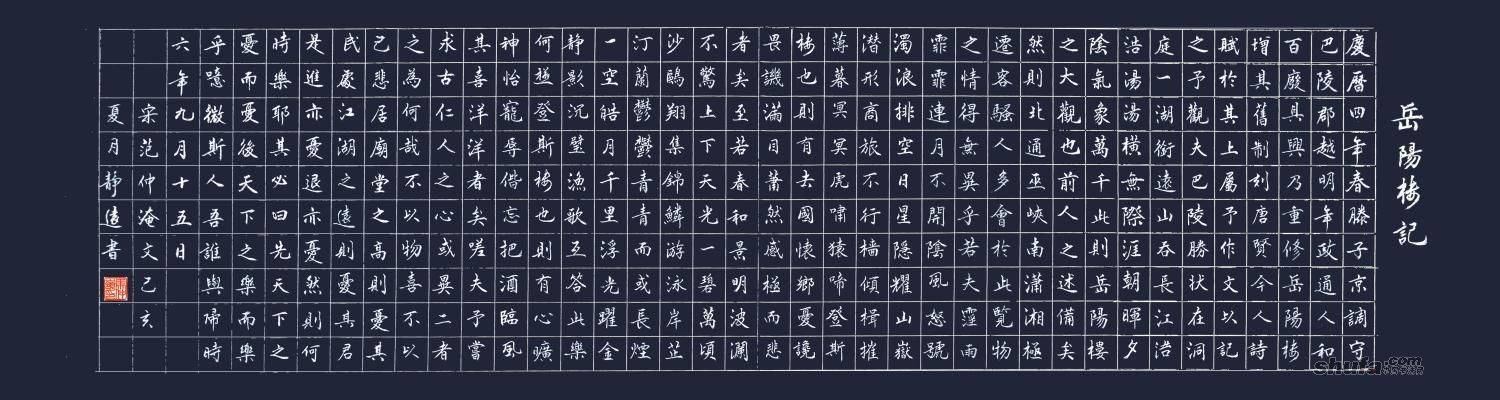 岳陽楼記
慶曆四年春滕子京謫守
巴陵郡越明年政通人和
百廢具興乃重修岳陽楼
增其舊制刻唐賢今人詩
賦於其上屬予作文以記
之予觀夫巴陵勝狀在洞
庭一湖銜遠山吞長江浩
浩湯湯橫無際涯朝暉夕
陰氣象萬千此則岳陽樓
之大觀也前人之述備矣
然則北通巫峽南瀟湘極
遷客騷人多會於此覽物
之情得無異乎若夫霪雨
霏霏連月不開陰風怒號
濁浪排空日星隱耀山嶽
潛形商旅不行檣傾楫摧
薄暮冥冥虎嘯猿啼登斯
楼也則有去國懷鄉憂讒
畏譏滿目蕭然感極而悲
者矣至若春和景明波瀾
不驚上下天光一碧萬頃
沙鷗翔集錦鱗游泳岸芷
汀蘭鬱鬱青青而或長煙
一空皓月千里浮光躍金
静影沉璧漁歌互答此樂
何極登斯楼也則有心曠
神怡寵辱偕忘把酒臨風
其喜洋洋者矣嗟夫予嘗
求古仁人之心或異二者
之為何哉不以物喜不以
己悲居廟堂之高則憂其
民處江湖之遠則憂其君
是進亦憂退亦憂然則何
時樂耶其必曰先天下之
憂而憂後天下之樂而樂
乎噫微斯人吾誰與歸時
六年九月十五日
宋范仲淹文己亥
夏月靜遠書
shufa.com